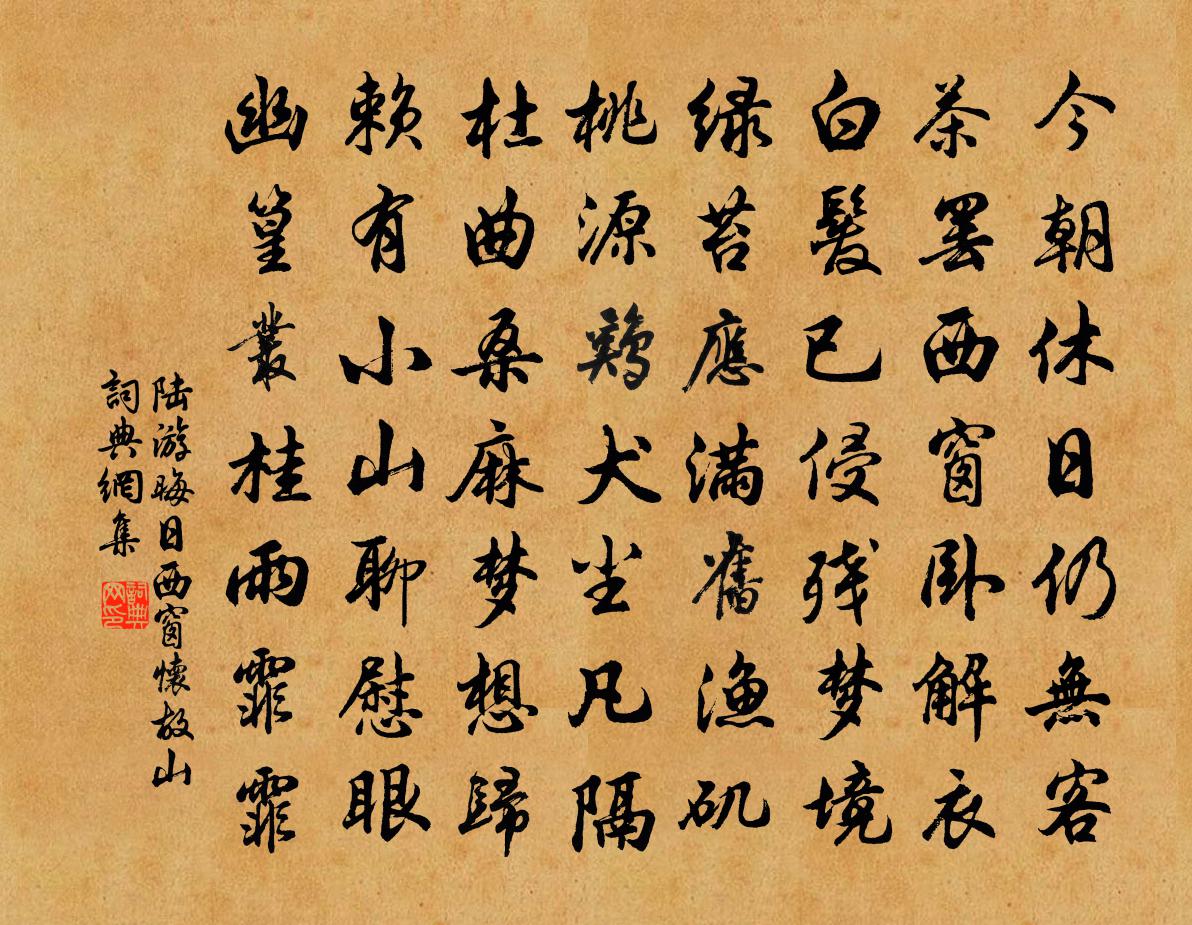 今朝休日仍無客
茶罢西窗卧解衣
白髮已侵残梦境
绿苔應满舊渔矶
桃源鷄犬尘凡隔
杜曲桑麻梦想歸
赖有小山聊慰眼
幽篁叢桂雨霏霏
陆游晦日西窗懷故山
詞典網集
詞典网印